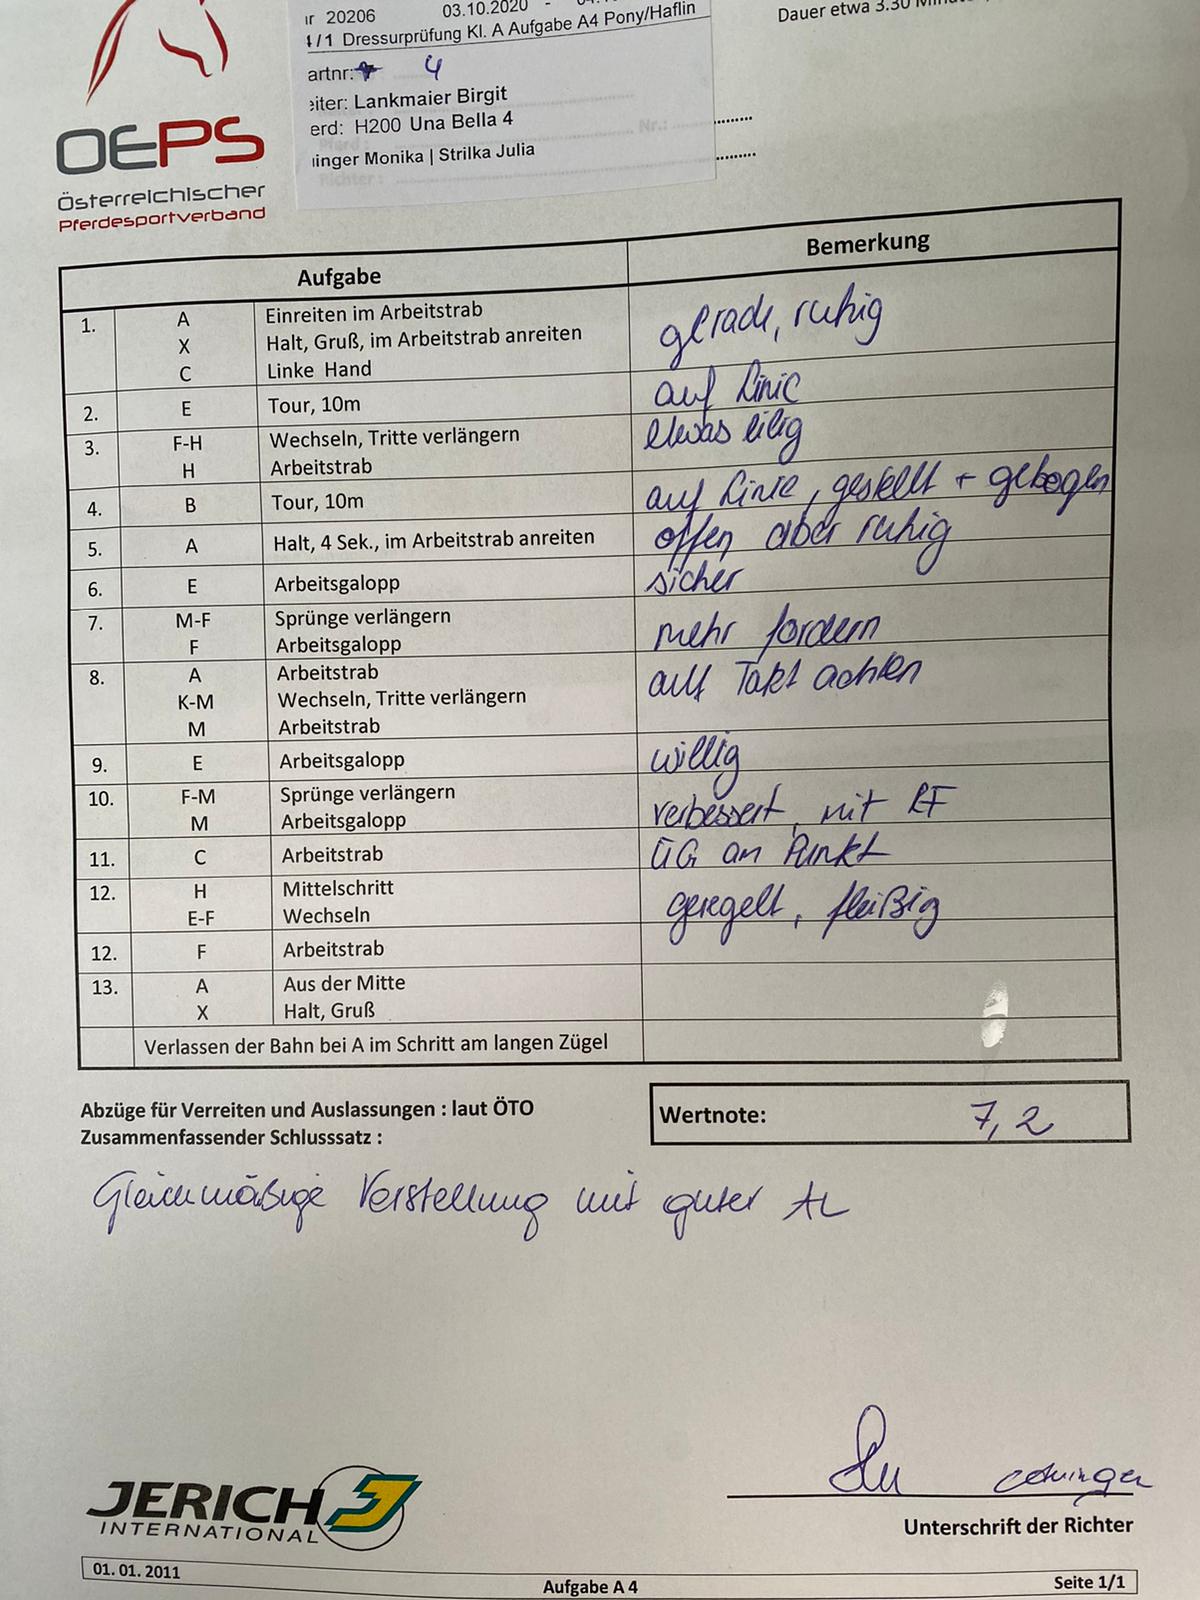 20206 03.10.2020 -
/1 Dressurprüfung Kl. A Aufgabe A4 Pony/Haflin
Dauer etwa 3.30
artnr: 4
eiter: Lankmaier Birgit
erd: H200 Una Bella 4
inger Monika | Strilka Julia
Nr.:
Pferd:
Richter:
OEPS
Österreichischer
Pferdesportverband
Aufgabe Bemerkung
1. A Einreiten im Arbeitstrab gerade, ruhig
X Halt, Gruß, im Arbeitstrab anreiten
C Linke Hand
2. E Tour, 10m auf Linie
3. F-H Wechseln, Tritte verlängern etwas eilig
H Arbeitstrab
4. B Tour, 10m auf Linie, gestellt + gebogen
5. A Halt, 4 Sek., im Arbeitstrab anreiten offen aber ruhig
6. E Arbeitsgalopp sicher
7. M-F Sprünge verlängern mehr fordern
F Arbeitsgalopp
8. A Arbeitstrab auf Takt achten
K-M Wechseln, Tritte verlängern
M Arbeitstrab
9. E Arbeitsgalopp willig
10. F-M Sprünge verlängern verbessert, mit RF
M Arbeitsgalopp
11. C Arbeitstrab ÜG am Punkt
12. H Mittelschritt geregelt, fleißig
E-F Wechseln
12. F Arbeitstrab
13. A Aus der Mitte
X Halt, Gruß
Verlassen der Bahn bei A im Schritt am langen Zügel
Abzüge für Verreiten und Auslassungen : laut ÖTO
Wertnote: 7,2
Zusammenfassender Schlusssatz :
Gleichmäßige Vorstellung mit guter AL
Unterschrift der Richter
JERICH
INTERNATIONAL
01. 01. 2011 Aufgabe A 4 Seite 1/1